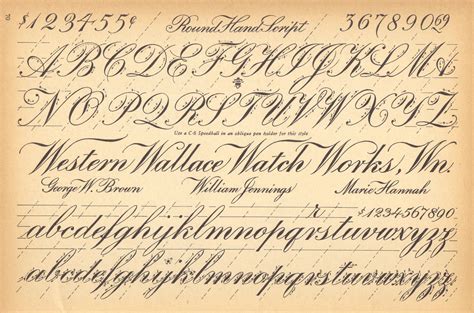 $123455¢ Round Hand Script 36789069
ABCDEFGHIJKLMN
NOPQRSTUVWXYZ
Use a C-6 Speedball in an oblique pen holder for this style
Western Wallace Watch Works, Wn.
George W. Brown William Jennings Marie Hannah
r $1234567890
abcdefghijklmnopqrstuvwxyzz
abcdefghijklmnopqrstuvwxyzz